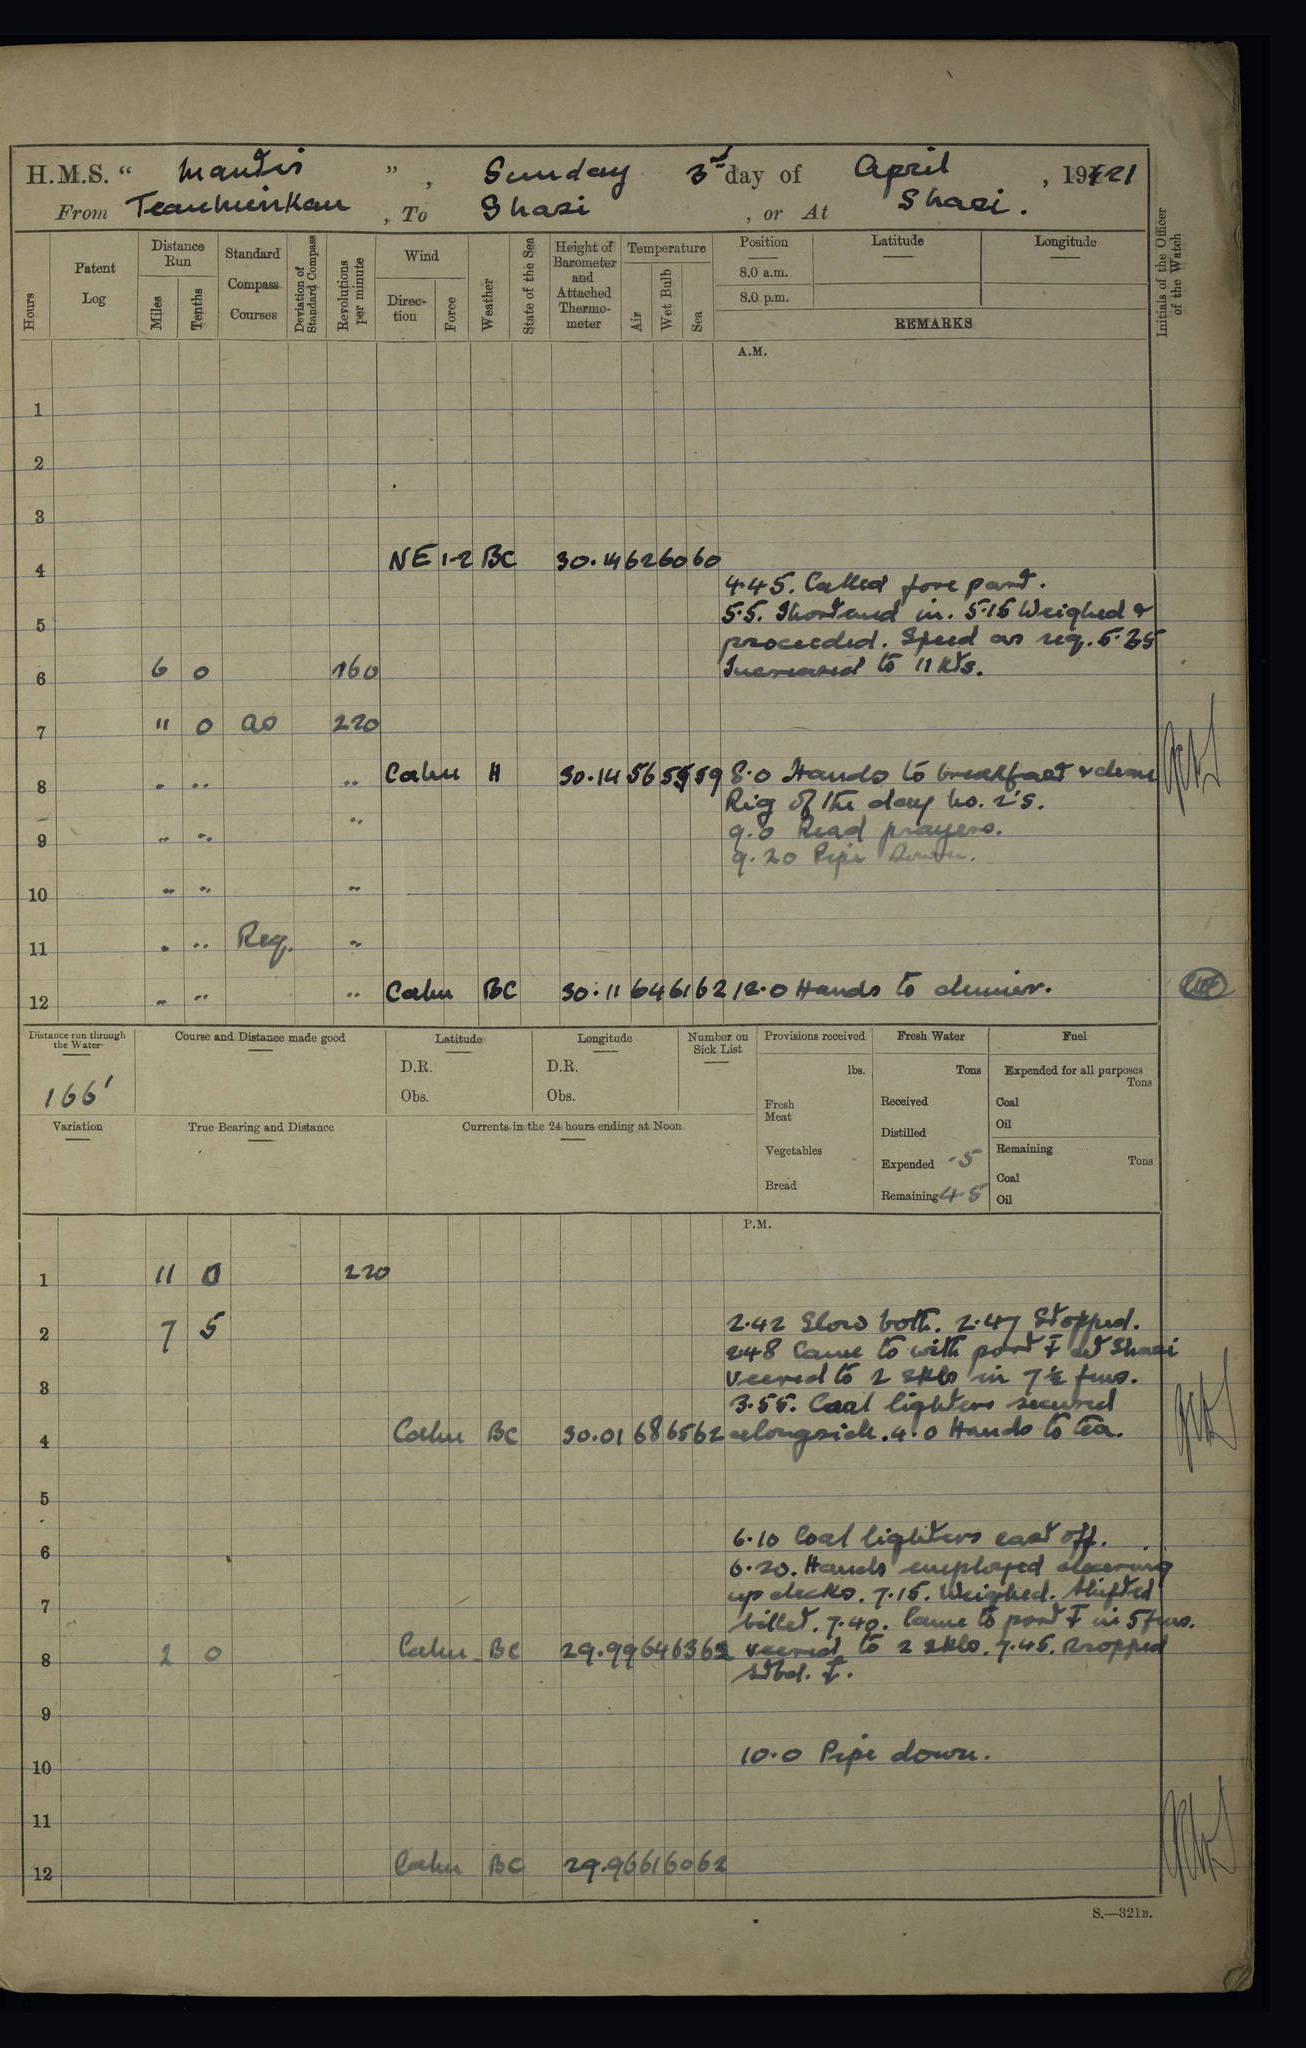 H.M.S. " Mantis " , Sunday 3rd day of April , 1921
From Teauhwinkau , To Shasi , or At Shasi.
Hours
Patent Log
Distance Run
Miles
Tenths
Standard Compass Courses
Deviation of Standard Compass
Revolutions per minute
Wind
Direction
Force
Weather
State of the Sea
Height of Barometer and Attached Thermometer
Temperature
Air
Wet Bulb
Sea
Position
8.0 a.m.
8.0 p.m.
Latitude
Longitude
REMARKS
Initials of the Officer of the Watch
A.M.
1
2
3
4 NE 1-2 BC 30.14 62 60 60
4.45. Called fore part.
5.5. Shortened in. 5.15 Weighed &
5
proceeded. Speed as req. 5.35
6 6 0 160 Increased to 11 Kts.
7 11 0 as 220
8 " " " Calm H 30.14 56 55 59 8.0 Hands to breakfast & clean
Rig of the day No. 2's.
9 " " " 9.0 Read prayers.
9.20 Pipe Down.
10 " " "
11 " " Req. "
12 " " " Calm BC 30.11 64 61 62 12.0 Hands to dinner.
Distance run through the Water
166'
Course and Distance made good
Latitude
D.R.
Obs.
Longitude
D.R.
Obs.
Number on Sick List
Provisions received
lbs.
Fresh Meat
Vegetables
Bread
Fresh Water
Tons
Received
Distilled
Expended .5
Remaining 4.5
Fuel
Expended for all purposes
Tons
Coal
Oil
Remaining
Tons
Coal
Oil
Variation
True Bearing and Distance
Currents in the 24 hours ending at Noon
P.M.
1 11 0 220
2 7 5 2.42 Slow both. 2.47 Stopped.
2.48 Came to with port ⚓ at Shasi
3 veered to 2 Skls in 7½ fms.
3.55. Coal lighters secured
4 Calm BC 30.01 68 65 62 alongside. 4.0 Hands to tea.
5
6.10 Coal lighters cast off.
6
6.20. Hands employed clearing
up decks. 7.15. Weighed. Shifted
7
billet. 7.40. Came to port ⚓ in 5 fms.
8 2 0 Calm BC 29.99 64 63 62 veered to 2 Skls. 7.45. Dropped
Stbd. ⚓.
9
10.0 Pipe down.
10
11
12 Calm BC 29.96 61 60 62
S.—321B.